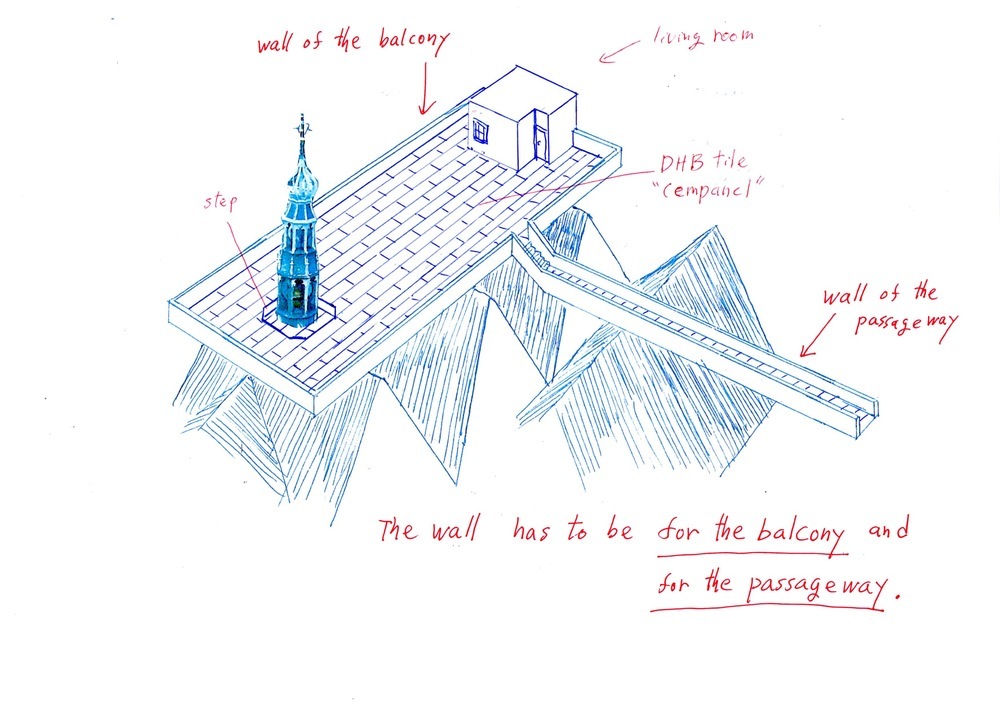 wall of the balcony
living room
DHB tile
"cempanel"
step
wall of the
passageway
The wall has to be for the balcony and
for the passageway.